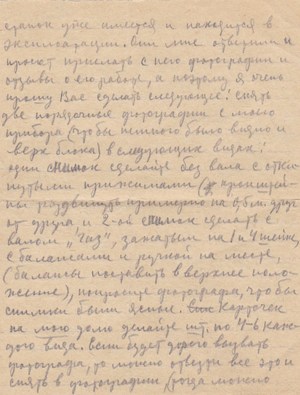 станок уже имеется и находится в
эксплоатации. Они мне ответили и
просят прислать с него фотографии и
отзывы о его работе, а поэтому я очень
прошу Вас сделать следующее: снять
две порядочные фотографии с моего
прибора (чтобы немного было видно и
верх блока) в следующих видах:
один снимок сделайте без вала с отки-
нутыми прижимами (
раздвинуть примерно на друг
от друга и 2-ой снимок сделать с
валом „ЧТЗ", зажатым на 1 и 4 шейке,
с балансами и ручкой на месте,
(балансы поставить в верхнее поло-
жение), попросите фотографа, чтобы
снимки были ясные. Карточек
на мою долю делайте шт. по 4-ь каж-
дого вида. Если будет дорого вызвать
фотографа, то можно отвезти все это и
снять в фотографии, тогда можно